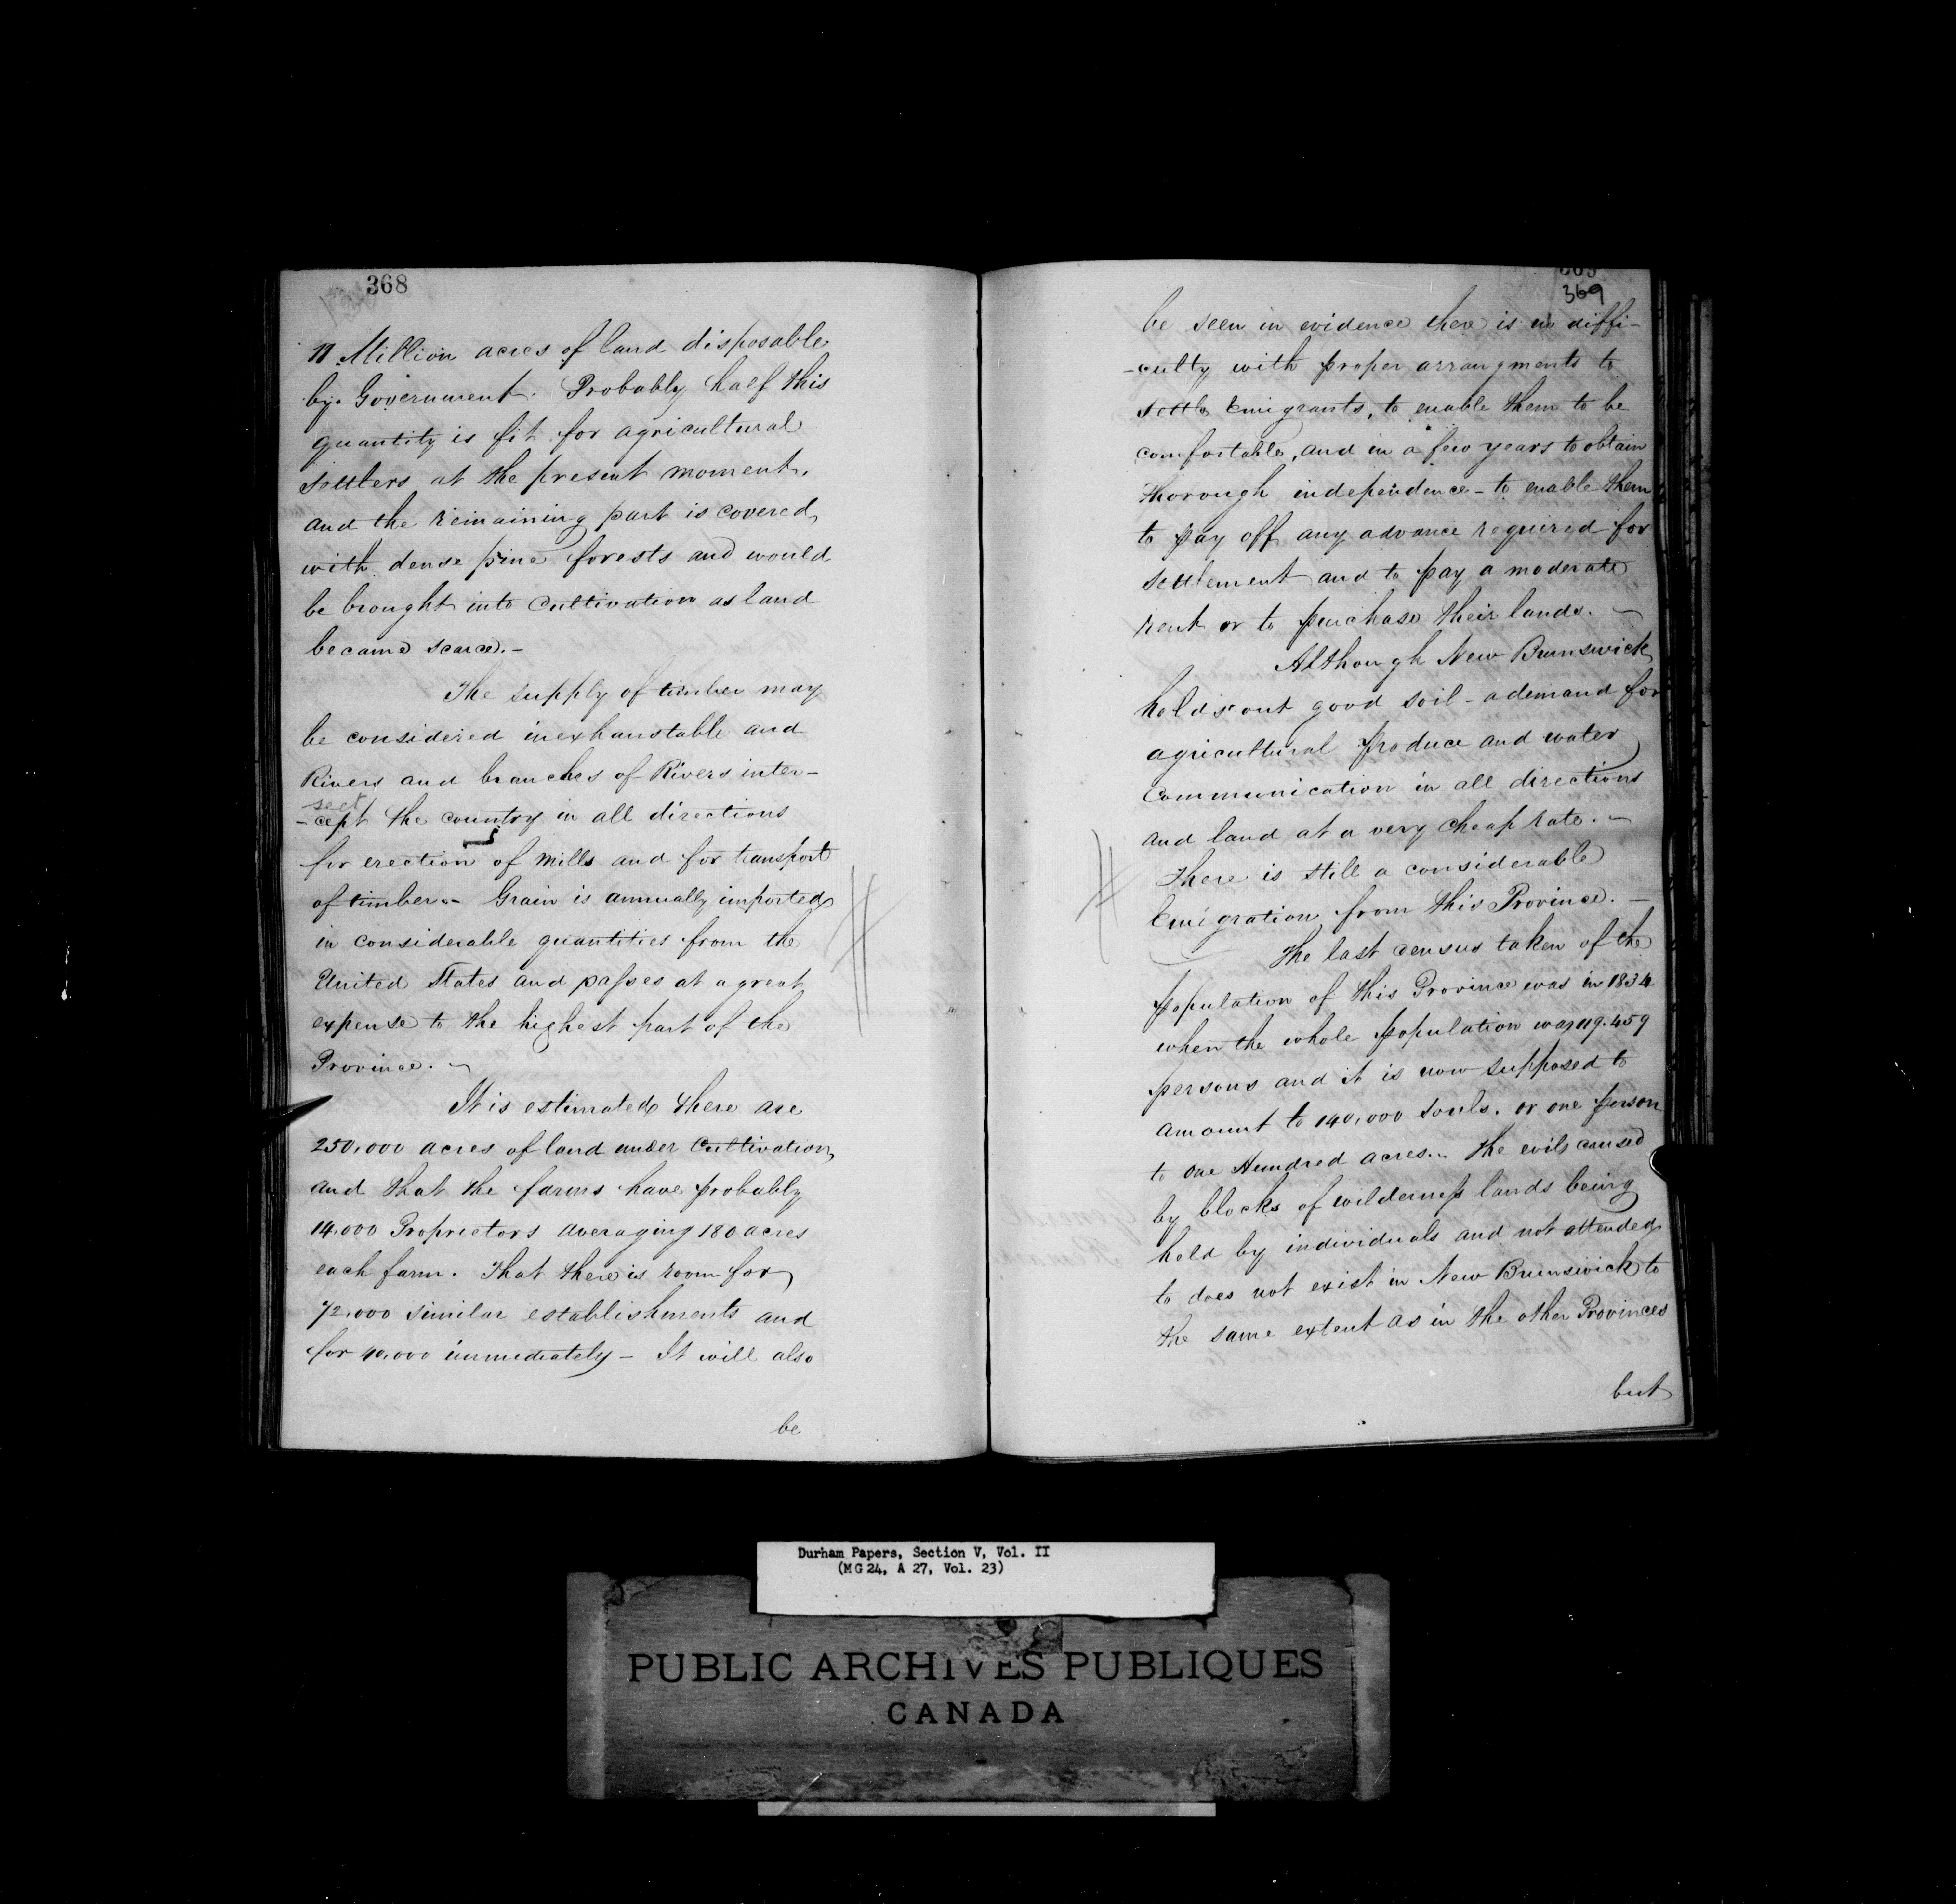 368
11 Million acres of land disposable
by Government. Probably half this
quantity is fit for agricultural
settlers at the present moment.
and the remaining part is covered
with dense pine forests and would
be brought into Cultivation as land
became scarce.-
The supply of timber may
be considered inexhaustable and
Rivers and branches of Rivers inter-
sect
-cept the country in all directions
for erection of mills and for transport
of timber.- Grain is annually imported
in considerable quantities from the
United States and passes at a great
expense to the highest part of the
Province.
It is estimated there are
250,000 acres of land under Cultivation
and that the farms have probably
14,000 Proprietors averaging 180 acres
each farm. That there is room for
72,000 similar establishments and
for 40,000 immediately - It will also
be
369
be seen in evidence there is no diffi-
-culty with proper arrangments to
settle Emigrants, to enable them to be
comfortable, and in a few years to obtain
thorough independence - to enable them
to pay off any advance required for
settlement and to pay a moderate
rent or to purchase their lands.
Although New Brunswick
holds out good soil - a demand for
agricultural produce and water
Communication in all directions
and land at a very cheap rate. -
There is still a considerable
Emigration from this Province. -
The last census taken of the
population of this Province was in 1834
when the whole population was 119.459
persons and it is now supposed to
amount to 140,000 souls. or one person
to one Hundred acres.- The evils caused
by blocks of wilderness lands being
held by individuals and not attended
to does not exist in New Brunswick to
the same extent as in the other Provinces
but
Durham Papers, Section V, Vol. II
(MG 24, A 27, Vol. 23)
PUBLIC ARCHIVES PUBLIQUES
CANADA